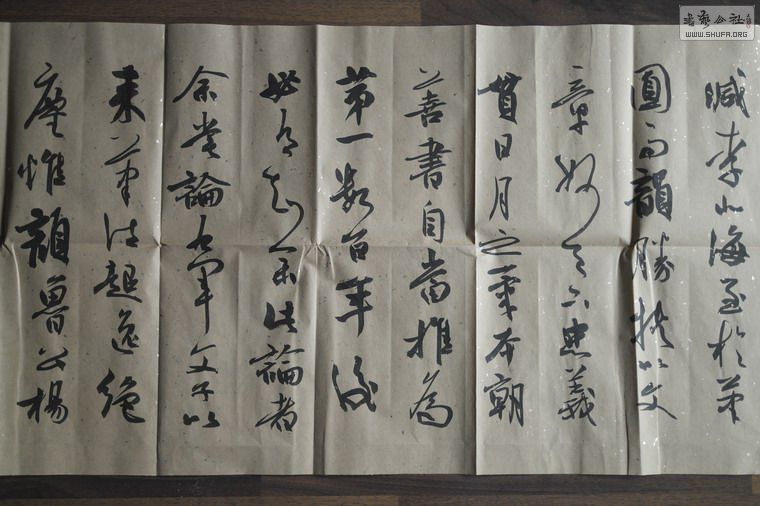 減李北海至於筆
圓而韻勝挾以文
章妙天下忠義
貫日月之氣本朝
善書自當推為
第一數百年後
必有知余此論者
余嘗論右軍父子以
來筆法超逸絕
塵惟顏魯公楊
书艺公社
WWW.SHUFA.ORG